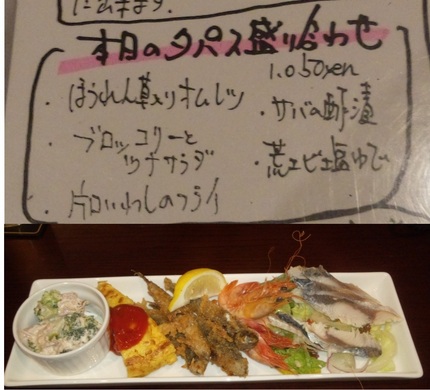 に出来ます.
本日のタパス盛り合わせ
1.050yen
・ほうれん草入りオムレツ
・ブロッコリーと
ツナサラダ
・片口いわしのフライ
・サバの酢漬
・荒エビ塩ゆで